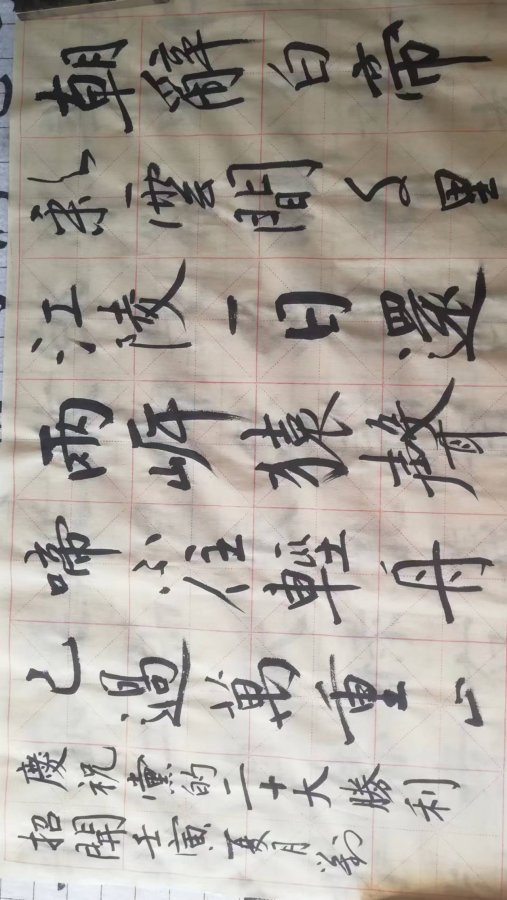 朝辭白帝
彩雲間千里
江陵一日還
兩岸猿聲
啼不住輕舟
已過萬重山
慶祝黨的二十大勝利
招開壬寅夏月